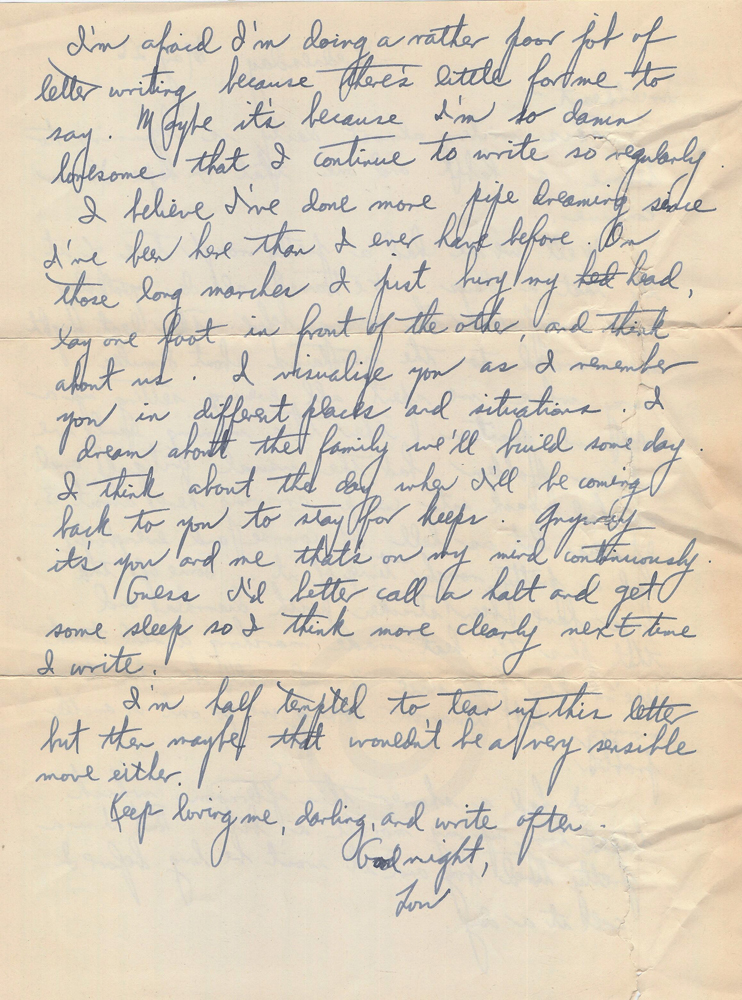 I'm afraid I'm doing a rather poor job of
letter writing because there's little for me to
say. Maybe it's because I'm so damn
lonesome that I continue to write so regularly.
I believe I've done more pipe dreaming since
I've been here than I ever have before. On
those long marches I just bury my hed head,
lay one foot in front of the other, and think
about us. I visualize you as I remember
you in different places and situations. I
dream about the family we'll build some day.
I think about the day when I'll be coming
back to you to stay for keeps. Anyway
it's you and me that's on my mind continuously.
Guess I'd better call a halt and get
some sleep so I think more clearly next time
I write.
I'm half tempted to tear up this letter
but then maybe that wouldn't be a very sensible
move either.
Keep loving me, darling, and write often.
Good night,
Lou